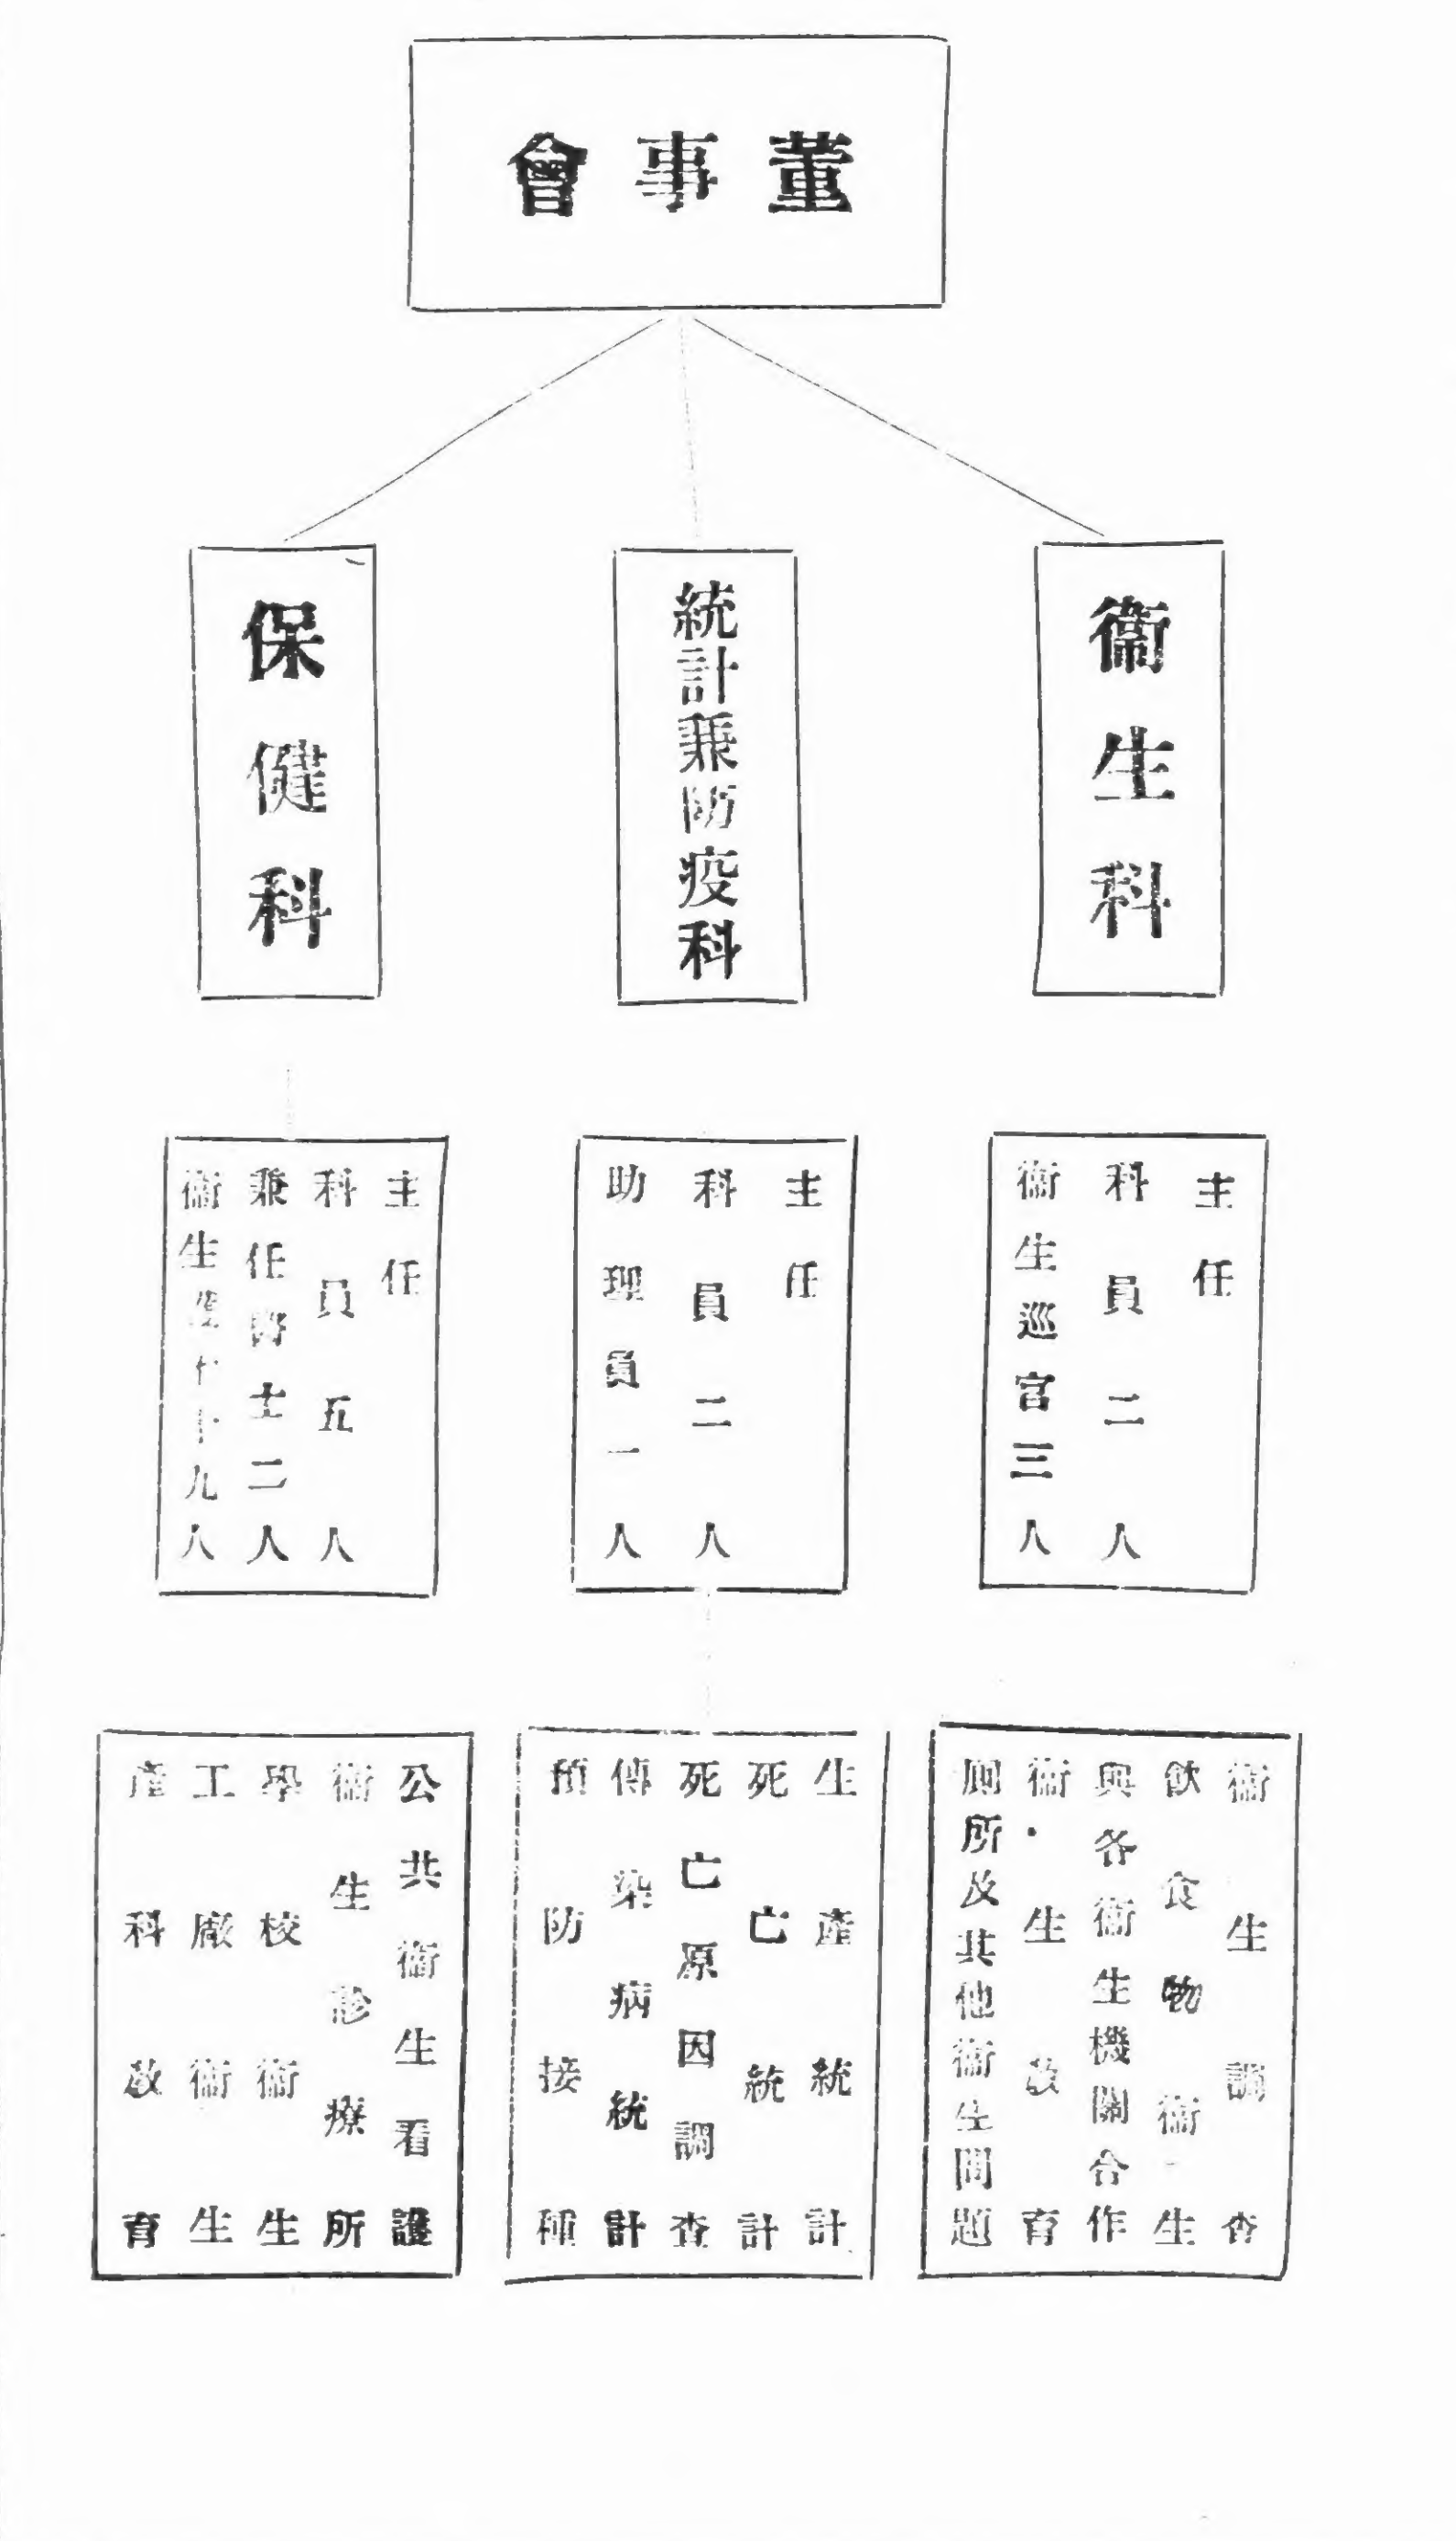 董事會
衞生科
統計兼防疫科
保健科
主任
科員二人
衞生巡官三人
主任
科員二人
助理員一人
主任
科員五人
兼任醫士二人
衞生九人
衞生調查
飲食物衞生
與各衞生機關合作
衞生敎育
厠所及其他衞生問題
生產統計
死亡統計
死亡原因調查
傳染病統計
預防接種
公共衞生看護
衞生診療所
學校衞生
工廠衞生
產科敎育